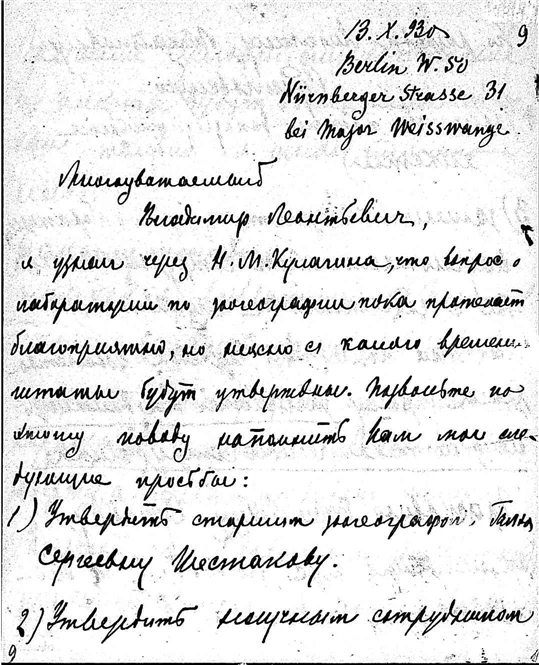 13. X. 930
9
Berlin W. 50
Nürnberger Strasse 31
bei Major Weisswange
Многоуважаемый
Владимир Леонтьевич,
я узнал через Н. М. Кулагина, что вопрос о
лаборатории по зоогеографии пока протекает
благоприятно, но неясно с какого времени
штаты будут утверждены. Позвольте по
этому поводу напомнить Вам мои сле-
дующие просьбы:
1) Утвердить старшим зоогеографом
Сергеевну Шестакову.
2) Утвердить научным сотрудником
9